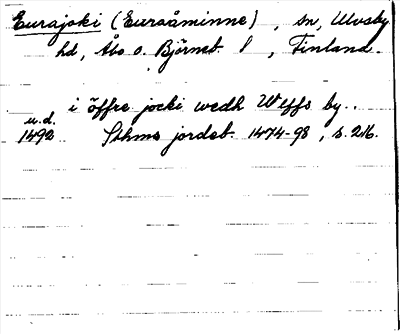 Eurajoki (Euraåminne), sn, Ulvsby
hd, Åbo o. Björneb. l, Finland.
i öffre jocki wedh Wlffs by..
u.d.
1492 Sthms jordeb. 1474-98, s. 216.